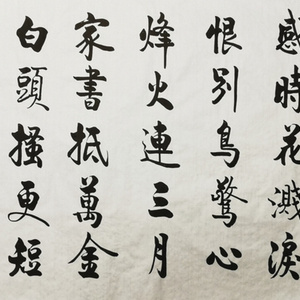 感時花濺淚
恨别鳥驚心
烽火連三月
家書抵萬金
白頭搔更短